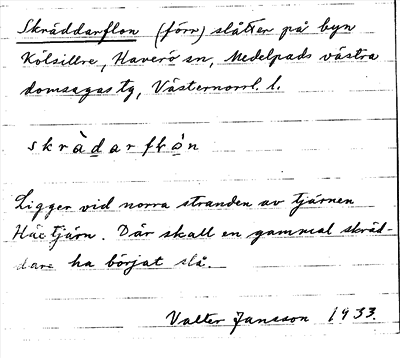 Skräddarflon (förr) slåtter på byn
Kölsillre, Haverö sn, Medelpads västra
domsagas tg, Västernorrl. l.
skràdarflón
Ligger vid norra stranden av tjärnen
Häctjärn. Där skall en gammal skräd-
dare ha börjat slå.
Valter Jansson 1933.